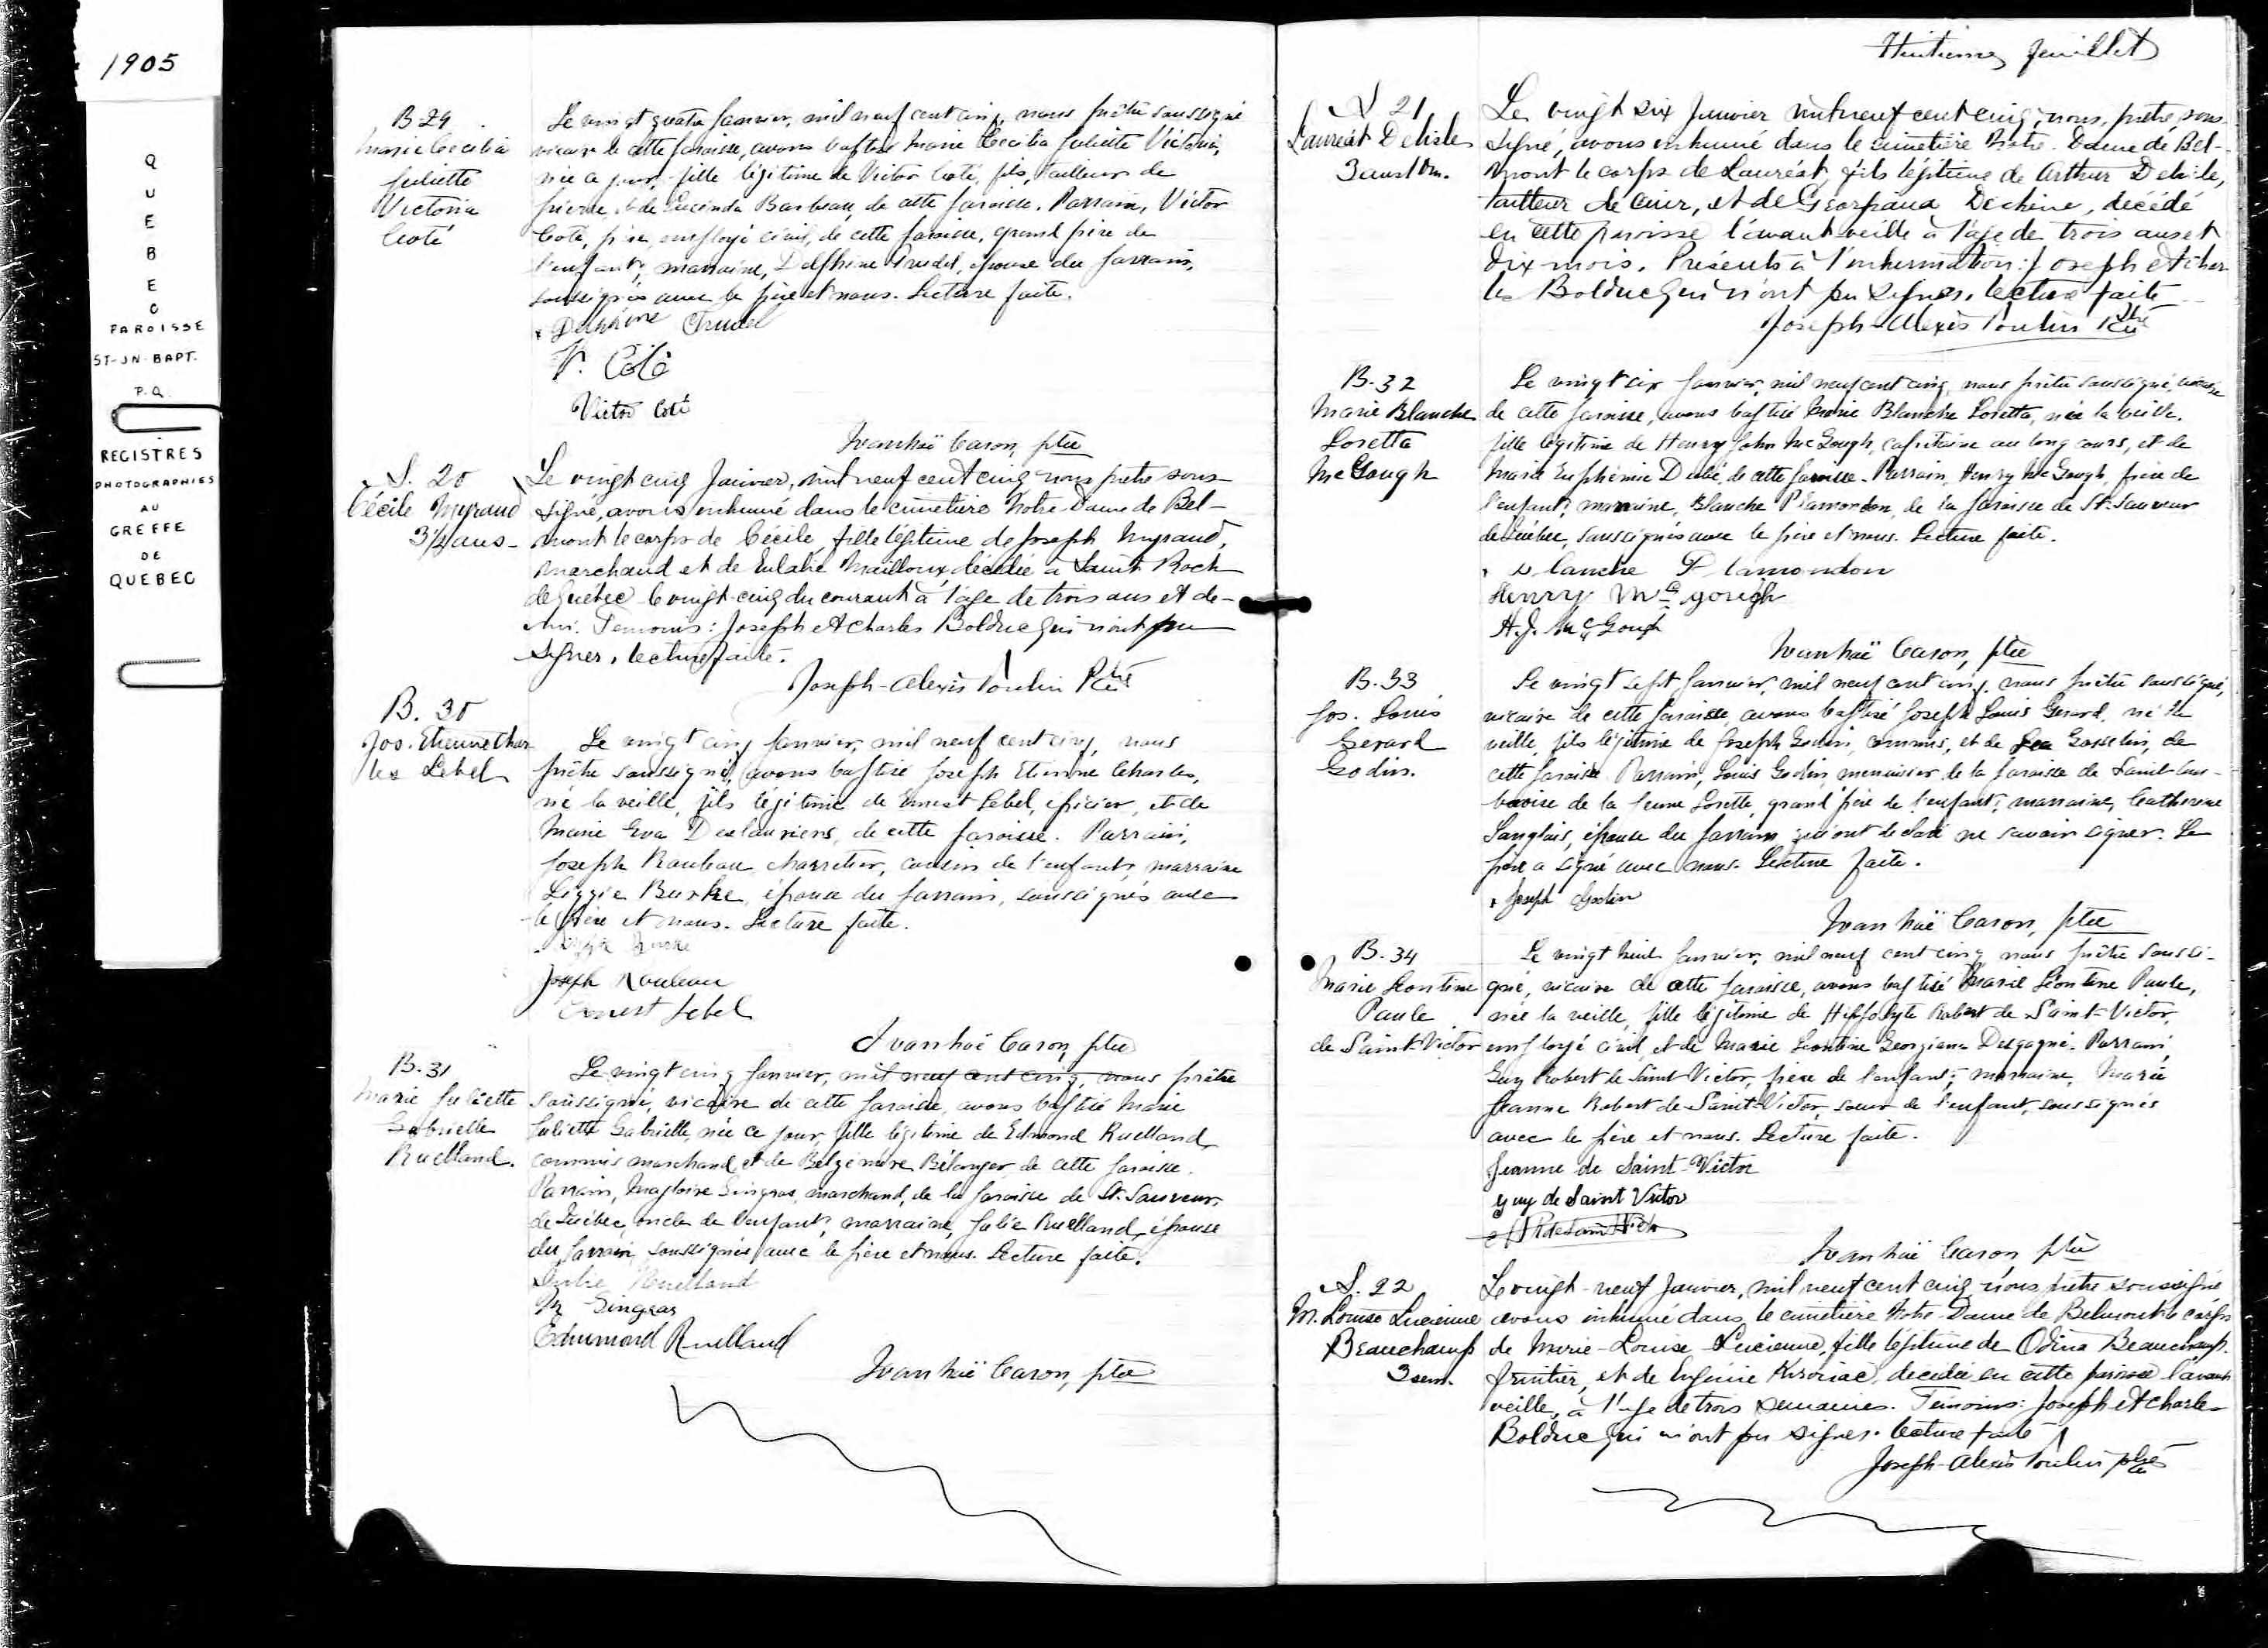 1905
QUEBEC
PAROISSE
ST-JN-BAPT.
P.Q.
REGISTRES
PHOTOGRAPHIES
AU
GREFFE
DE
QUEBEC
B 29
Marie Cecilia
Juliette
Victoria
Coté
Le vingt quatre Janvier, mil neuf cent cinq, nous prêtre soussigné
vicaire de cette paroisse, avons baptisé Marie Cecilia Juliette Victoria,
née ce jour, fille légitime de Victor Coté, fils, tailleur de
pierre, et de Lucinda Barbeau, de cette paroisse. Parrain, Victor
Coté, père, employé civil, de cette paroisse, grand père de
l'enfant; marraine, Delphine Trudel, épouse du parrain,
soussignés avec le père et nous. Lecture faite.
Delphine Trudel
V. Coté
Victor Coté
Ivanhoë Caron, ptre
S. 20
Cécile Myrand
3 1/2 ans
Le vingt cinq Janvier, mil neuf cent cinq nous prêtre sous-
signé, avons inhumé dans le cimetière Notre Dame de Bel-
mont le corps de Cécile, fille légitime de Joseph Myrand,
marchand et de Eulalie Mailloux, décédée à Saint Roch
de Québec le vingt-cinq du courant à l'age de trois ans et de-
mi. Temoins: Joseph et Charles Bolduc qui n'ont pu
signer, lecture faite.
Joseph-Alexis Poulin Ptre
B. 30
Jos. Etienne Char
les Lebel
Le vingt cinq Janvier, mil neuf cent cinq, nous
prêtre soussigné, avons baptisé Joseph Etienne Charles,
né la veille, fils légitime de Ernest Lebel, épicier, et de
Marie Eva Deslauriers, de cette paroisse. Parrain,
Joseph Rouleau charretier, cousin de l'enfant; marraine
Lizzie Burke, épouse du parrain, soussignés avec
le père et nous. Lecture faite.
Joseph Rouleau
Ernest Lebel
Ivanhoë Caron, ptre
B. 31
Marie Juliette
Gabrielle
Ruelland.
Le vingt cinq Janvier, mil neuf cent cinq, nous prêtre
soussigné, vicaire de cette paroisse, avons baptisé Marie
Juliette Gabrielle, née ce jour, fille légitime de Edmond Ruelland,
commis marchand, et de Belzemire Bélanger, de cette paroisse.
Parrain, Magloire Gingras, marchand, de la paroisse de St. Sauveur
de Québec, oncle de l'enfant; marraine, Julie Ruelland, épouse
du parrain, soussignés avec le père et nous. Lecture faite.
Julie Ruelland
M Gingras
Edmmond Ruelland
Ivanhoë Caron, ptre
Huitième feuillet
S 21
Lauréat Delisle
3 ans 10 m.
Le vingt six Janvier mil neuf cent cinq, nous, prêtre, sous-
signé, avons inhumé dans le cimetière Notre-Dame de Bel-
mont le corps de Lauréat, fils légitime de Arthur Delisle,
tailleur de cuir, et de Georgiana Dechène, décédé
en cette paroisse l'avant veille à l'age de trois ans et
dix mois. Présents à l'inhumation: Joseph et Char
les Bolduc qui n'ont pu signer. lecture faite
Joseph-Alexis Poulin Ptre
B. 32
Marie Blanche
Loretta
McGough
Le vingt six Janvier, mil neuf cent cinq, nous prêtre soussigné, vicaire
de cette paroisse, avons baptisé Marie Blanche Loretta, née la veille,
fille légitime de Henry John McGough, capitaine au long cours, et de
Marie Euphémie Dubé, de cette paroisse. Parrain, Henry McGough, frère de
l'enfant; marraine, Blanche Plamondon, de la paroisse de St. Sauveur
de Québec, soussignés avec le père et nous. Lecture faite.
Blanche Plamondon
Henry McGough
H.J. McGough
Ivanhoë Caron, ptre
B. 33
Jos. Louis
Gerard
Godin.
Le vingt sept Janvier, mil neuf cent cinq, nous prêtre soussigné,
vicaire de cette paroisse, avons baptisé Joseph Louis Gerard, né la
veille, fils légitime de Joseph Godin, commis, et de Lea Gosselin, de
cette paroisse. Parrain, Louis Godin, menuisier de la paroisse de Saint-Am-
broise de la Jeune Lorette, grand'père de l'enfant; marraine, Catherine
Langlais, épouse du parrain qui ont déclaré ne savoir signer. Le
père a signé avec nous. Lecture faite.
Joseph Godin
Ivanhoë Caron, ptre
B. 34
Marie Leontine
Paule
de Saint-Victor
Le vingt huit Janvier, mil neuf cent cinq nous prêtre soussi-
gné, vicaire de cette paroisse, avons baptisé Marie Léontine Paule,
née la veille, fille légitime de Hippolyte Robert de Saint-Victor,
employé civil, et de Marie Leontine Georgiana Desgagné. Parrain,
Guy Robert de Saint Victor, frère de l'enfant; marraine, Marie
Jeanne Robert de Saint-Victor, soeur de l'enfant, soussignés
avec le père et nous. Lecture faite.
Jeanne de Saint-Victor
Guy de Saint Victor
Ivanhoë Caron, ptre
S. 22
M. Louise Lucienne
Beauchamp
3 sem.
Le vingt-neuf Janvier, mil neuf cent cinq nous, prêtre soussigné
avons inhumé dans le cimetière Notre-Dame de Belmont le corps
de Marie-Louise Lucienne, fille légitime de Odina Beauchamp,
fruitier, et de Eugénie Kirouac, decedée en cette paroisse l'avant
veille, à l'age de trois semaines. Témoins: Joseph et Charles
Bolduc qui n'ont pu signer. lecture faite
Joseph-Alexis Poulin ptre